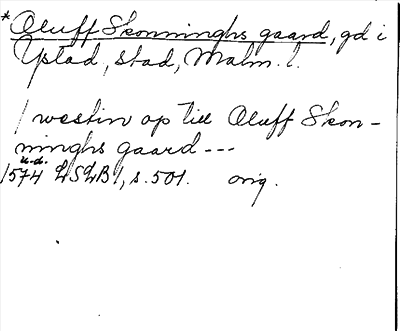 * Oluff Skonninghs gaard, gd i
Ystad, stad, Malm. l.
/ westin op till Oluff Skon-
ninghs gaard ---
u.d.
1574 LSLB 1, s. 501. orig.